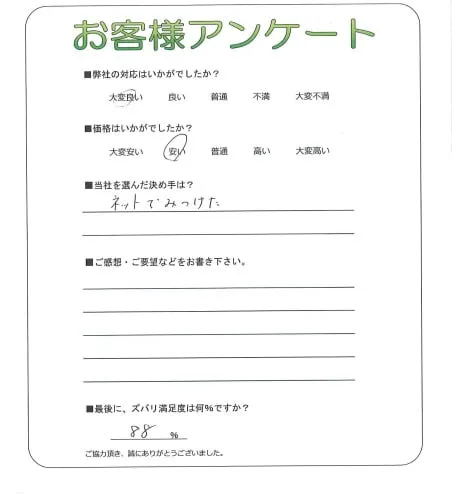 お客様アンケート
■弊社の対応はいかがでしたか？
大変良い 良い 普通 不満 大変不満
■価格はいかがでしたか？
大変安い 安い 普通 高い 大変高い
■当社を選んだ決め手は？
ネットでみつけた
■ご感想・ご要望などをお書き下さい。
■最後に、ズバリ満足度は何％ですか？
88 ％
ご協力頂き、誠にありがとうございました。